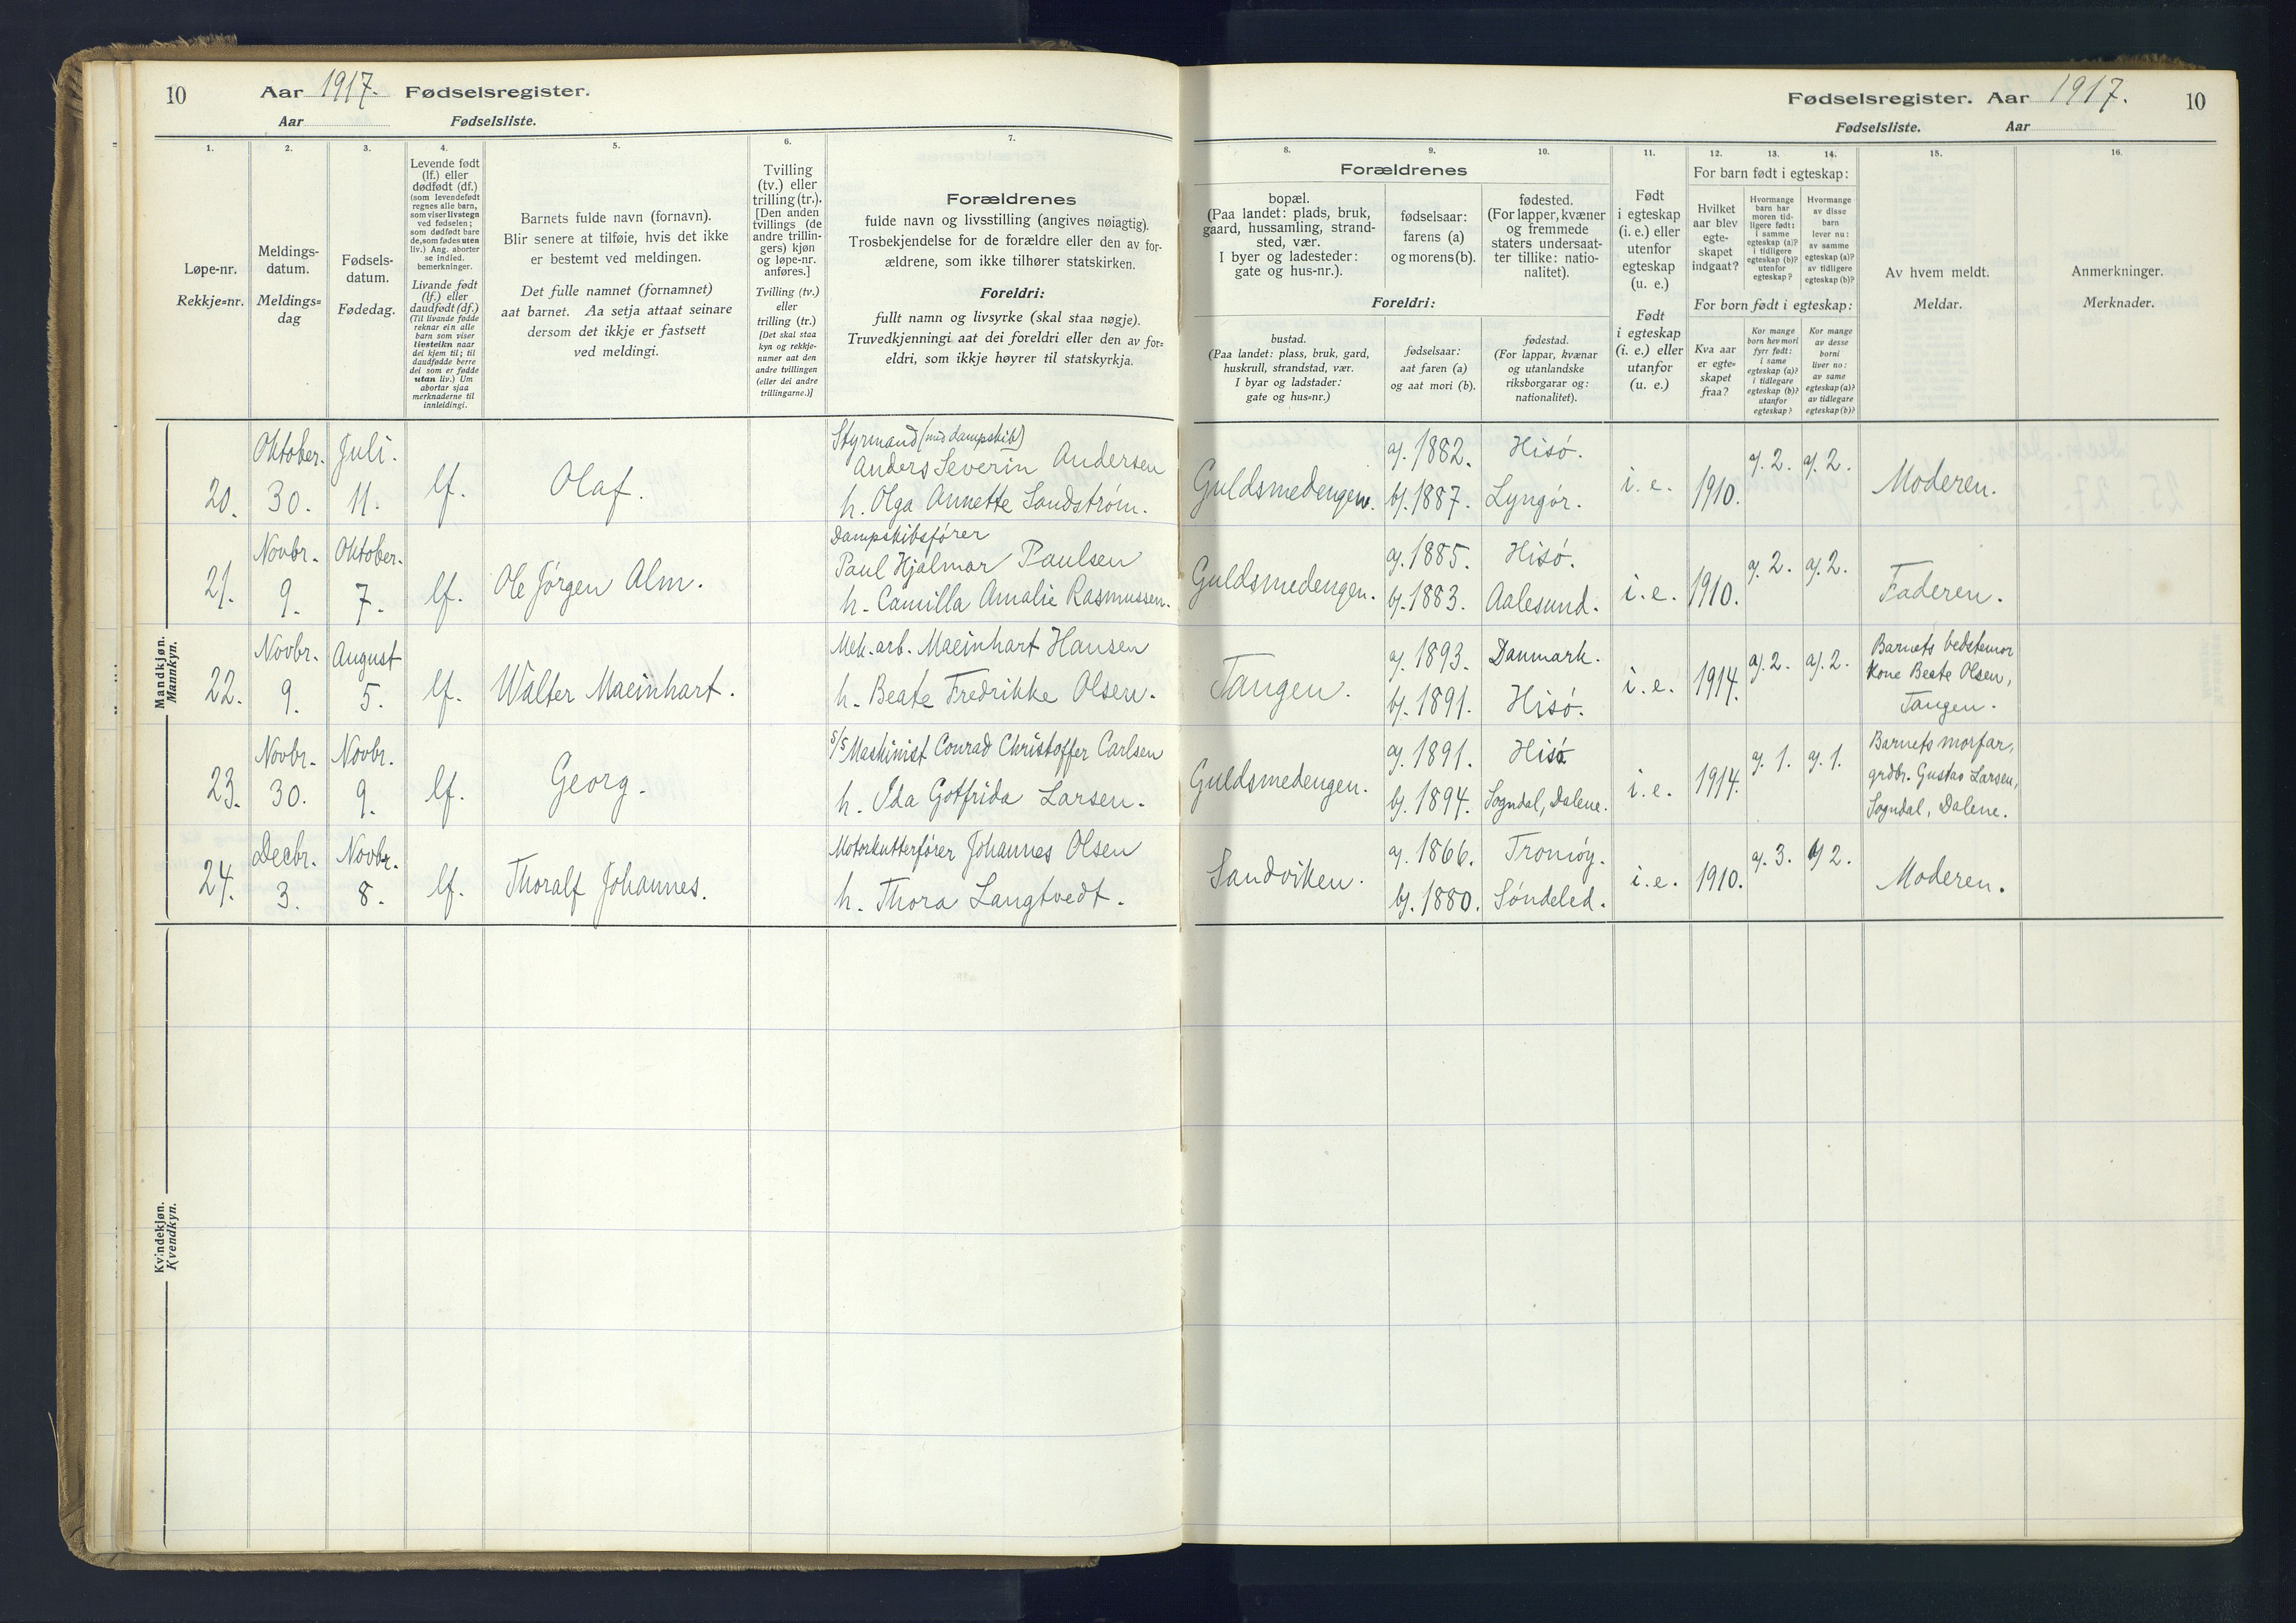 10
Aar 1917. Fødselsregister.
Aar Fødselsliste.
1.
Løpe-nr.
Rekkje=nr.
2.
Meldings-
datum.
Meldings=
dag
3.
Fødsels-
datum.
Fødedag.
4.
Levende født
(lf.) eller
dødfødt (df.)
(som levendefødt
regnes alle barn,
som viser livstegn
ved fødselen;
som dødfødt bare
de, som fødes uten
liv.) Ang. aborter
se indled.
bemerkninger.
Livande født
(lf.) eller
daudfødt (df.)
(Til livande fødde
reknar ein alle
barn som viser
livsteikn naar
dei kjem til; til
daudfødde berre
dei som er fødde
utan liv.) Um
abortar sjaa
merknaderne til
innleidingi.
5.
Barnets fulde navn (fornavn).
Blir senere at tilføie, hvis det ikke
er bestemt ved meldingen.
Det fulle namnet (fornamnet)
aat barnet. Aa setja attaat seinare
dersom det ikkje er fastsett
ved meldingi.
6.
Tvilling
(tv.) eller
trilling (tr.).
[Den anden
tvillings (de
andre trillin-
gers) kjøn
og løpe-nr.
anføres.]
Tvilling (tv.)
eller
trilling (tr.)
[Det skal staa
kyn og rekkje-
numer aat den
andre tvillingen
(eller dei andre
trillingarne.)]
7.
Forældrenes
fulde navn og livsstilling (angives nøiagtig).
Trosbekjendelse for de forældre eller den av for-
ældrene, som ikke tilhører statskirken.
Foreldri:
fullt namn og livsyrke (skal staa nøgje).
Truvedkjenningi aat dei foreldri eller den av for=
eldri, som ikkje høyrer til statskyrkja.
Mandkjøn.
Mannkyn.
20.
Oktober.
30.
Juli.
11.
lf.
Olaf.
Styrmand (med dampskib)
Anders Severin Andersen
h. Olga Annette Sandstrøm.
21.
Novbr.
9.
Oktober.
7.
lf.
Ole Jørgen Alm.
Dampskibsfører
Paul Hjalmar Paulsen
h. Camilla Amalie Rasmussen.
22.
Novbr.
9.
August
5.
lf.
Walter Maeinhart.
Mek. arb. Maeinhart Hansen
h. Beate Fredrikke Olsen.
23.
Novbr.
30.
Novbr.
9.
lf.
Georg.
S/S Maskinist Conrad Christoffer Carlsen
h. Ida Gotfrida Larsen.
24.
Decbr.
3.
Novbr.
8.
lf.
Thoralf Johannes.
Motorkutterfører Johannes Olsen
h. Thora Langtvedt.
Kvindekjøn.
Kvendkyn.
Fødselsregister. Aar 1917.
10
Fødselsliste. Aar
Forældrenes
8.
bopæl.
(Paa landet: plads, bruk,
gaard, hussamling, strand-
sted, vær.
I byer og ladesteder:
gate og hus-nr.).
9.
fødselsaar:
farens (a)
og morens (b).
10.
fødested.
(For lapper, kvæner
og fremmede
staters undersaat-
ter tillike: natio-
nalitet).
Foreldri:
bustad.
(Paa landet: plass, bruk, gard,
huskrull, strandstad, vær.
I byar og ladstader:
gate og hus=nr.)
fødselsaar:
aat faren (a)
og aat mori (b).
fødestad.
(For lappar, kvænar
og utanlandske
riksborgarar og:
nationalitet).
11.
Født
i egteskap
(i. e.) eller
utenfor
egteskap
(u. e.)
Født
i egteskap
(i. e.) eller
utanfor
(u. e.)
For barn født i egteskap:
12.
Hvilket
aar blev
egte-
skapet
indgaat?
13.
Hvormange
barn har
moren tid-
ligere født:
i samme
egteskap (a)?
i tidligere
egteskap (b)?
utenfor
egteskap?
14.
Hvormange
av disse
barn
lever nu:
av samme
egteskap (a)?
av tidligere
egteskap (b)?
For born født i egteskap:
Kva aar
er egte-
skapet
fraa?
Kor mange
born hev mori
fyrr født:
i same
egteskap (a)?
i tidlegare
egteskap (b)?
utanfor
egteskap?
Kor mange
av desse
borni
liver no:
av same
egteskap (a)?
av tidlegare
egteskap (b)?
15.
Av hvem meldt.
Meldar.
16.
Anmerkninger.
Merknader.
Guldsmedengen.
a). 1882.
b). 1887.
Hisø.
Lyngør.
i. e.
1910.
a). 2.
a). 2.
Moderen.
Guldsmedengen.
a). 1885.
b). 1883.
Hisø.
Aalesund.
i. e.
1910.
a). 2.
a). 2.
Faderen.
Tangen.
a). 1893.
b). 1891.
Danmark.
Hisø.
i. e.
1914.
a). 2.
a). 2.
Barnets bedstemor
Kone Beate Olsen,
Tangen.
Guldsmedengen.
a). 1891.
b). 1894.
Hisø
Sogndal, Dalene.
i. e.
1914.
a). 1.
a). 1.
Barnets morfar,
grdbr. Gustav Larsen,
Sogndal, Dalene.
Sandviken.
a). 1866.
b). 1880.
Tromøy.
Søndeled.
i. e.
1910.
a). 3.
a) 2.
Moderen.